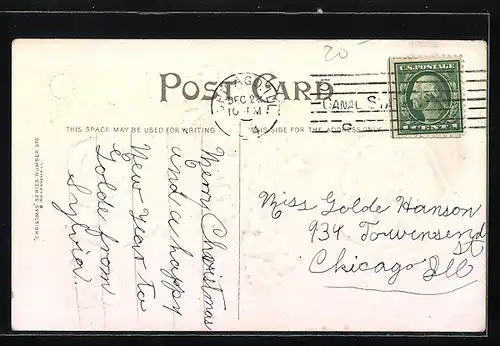 20
POST CARD
CHICAGO, ILL.
DEC 22
10 PM
CANAL STA
U.S. POSTAGE
1 CENT 1
THIS SPACE MAY BE USED FOR WRITING
THIS SIDE FOR THE ADDRESS ONLY
Merry Christmas
and a happy
New Year to
Golde from
Sylvia.
Miss Golde Hanson
934 Townsend
St
Chicago Ill
"CHRISTMAS" SERIES NUMBER